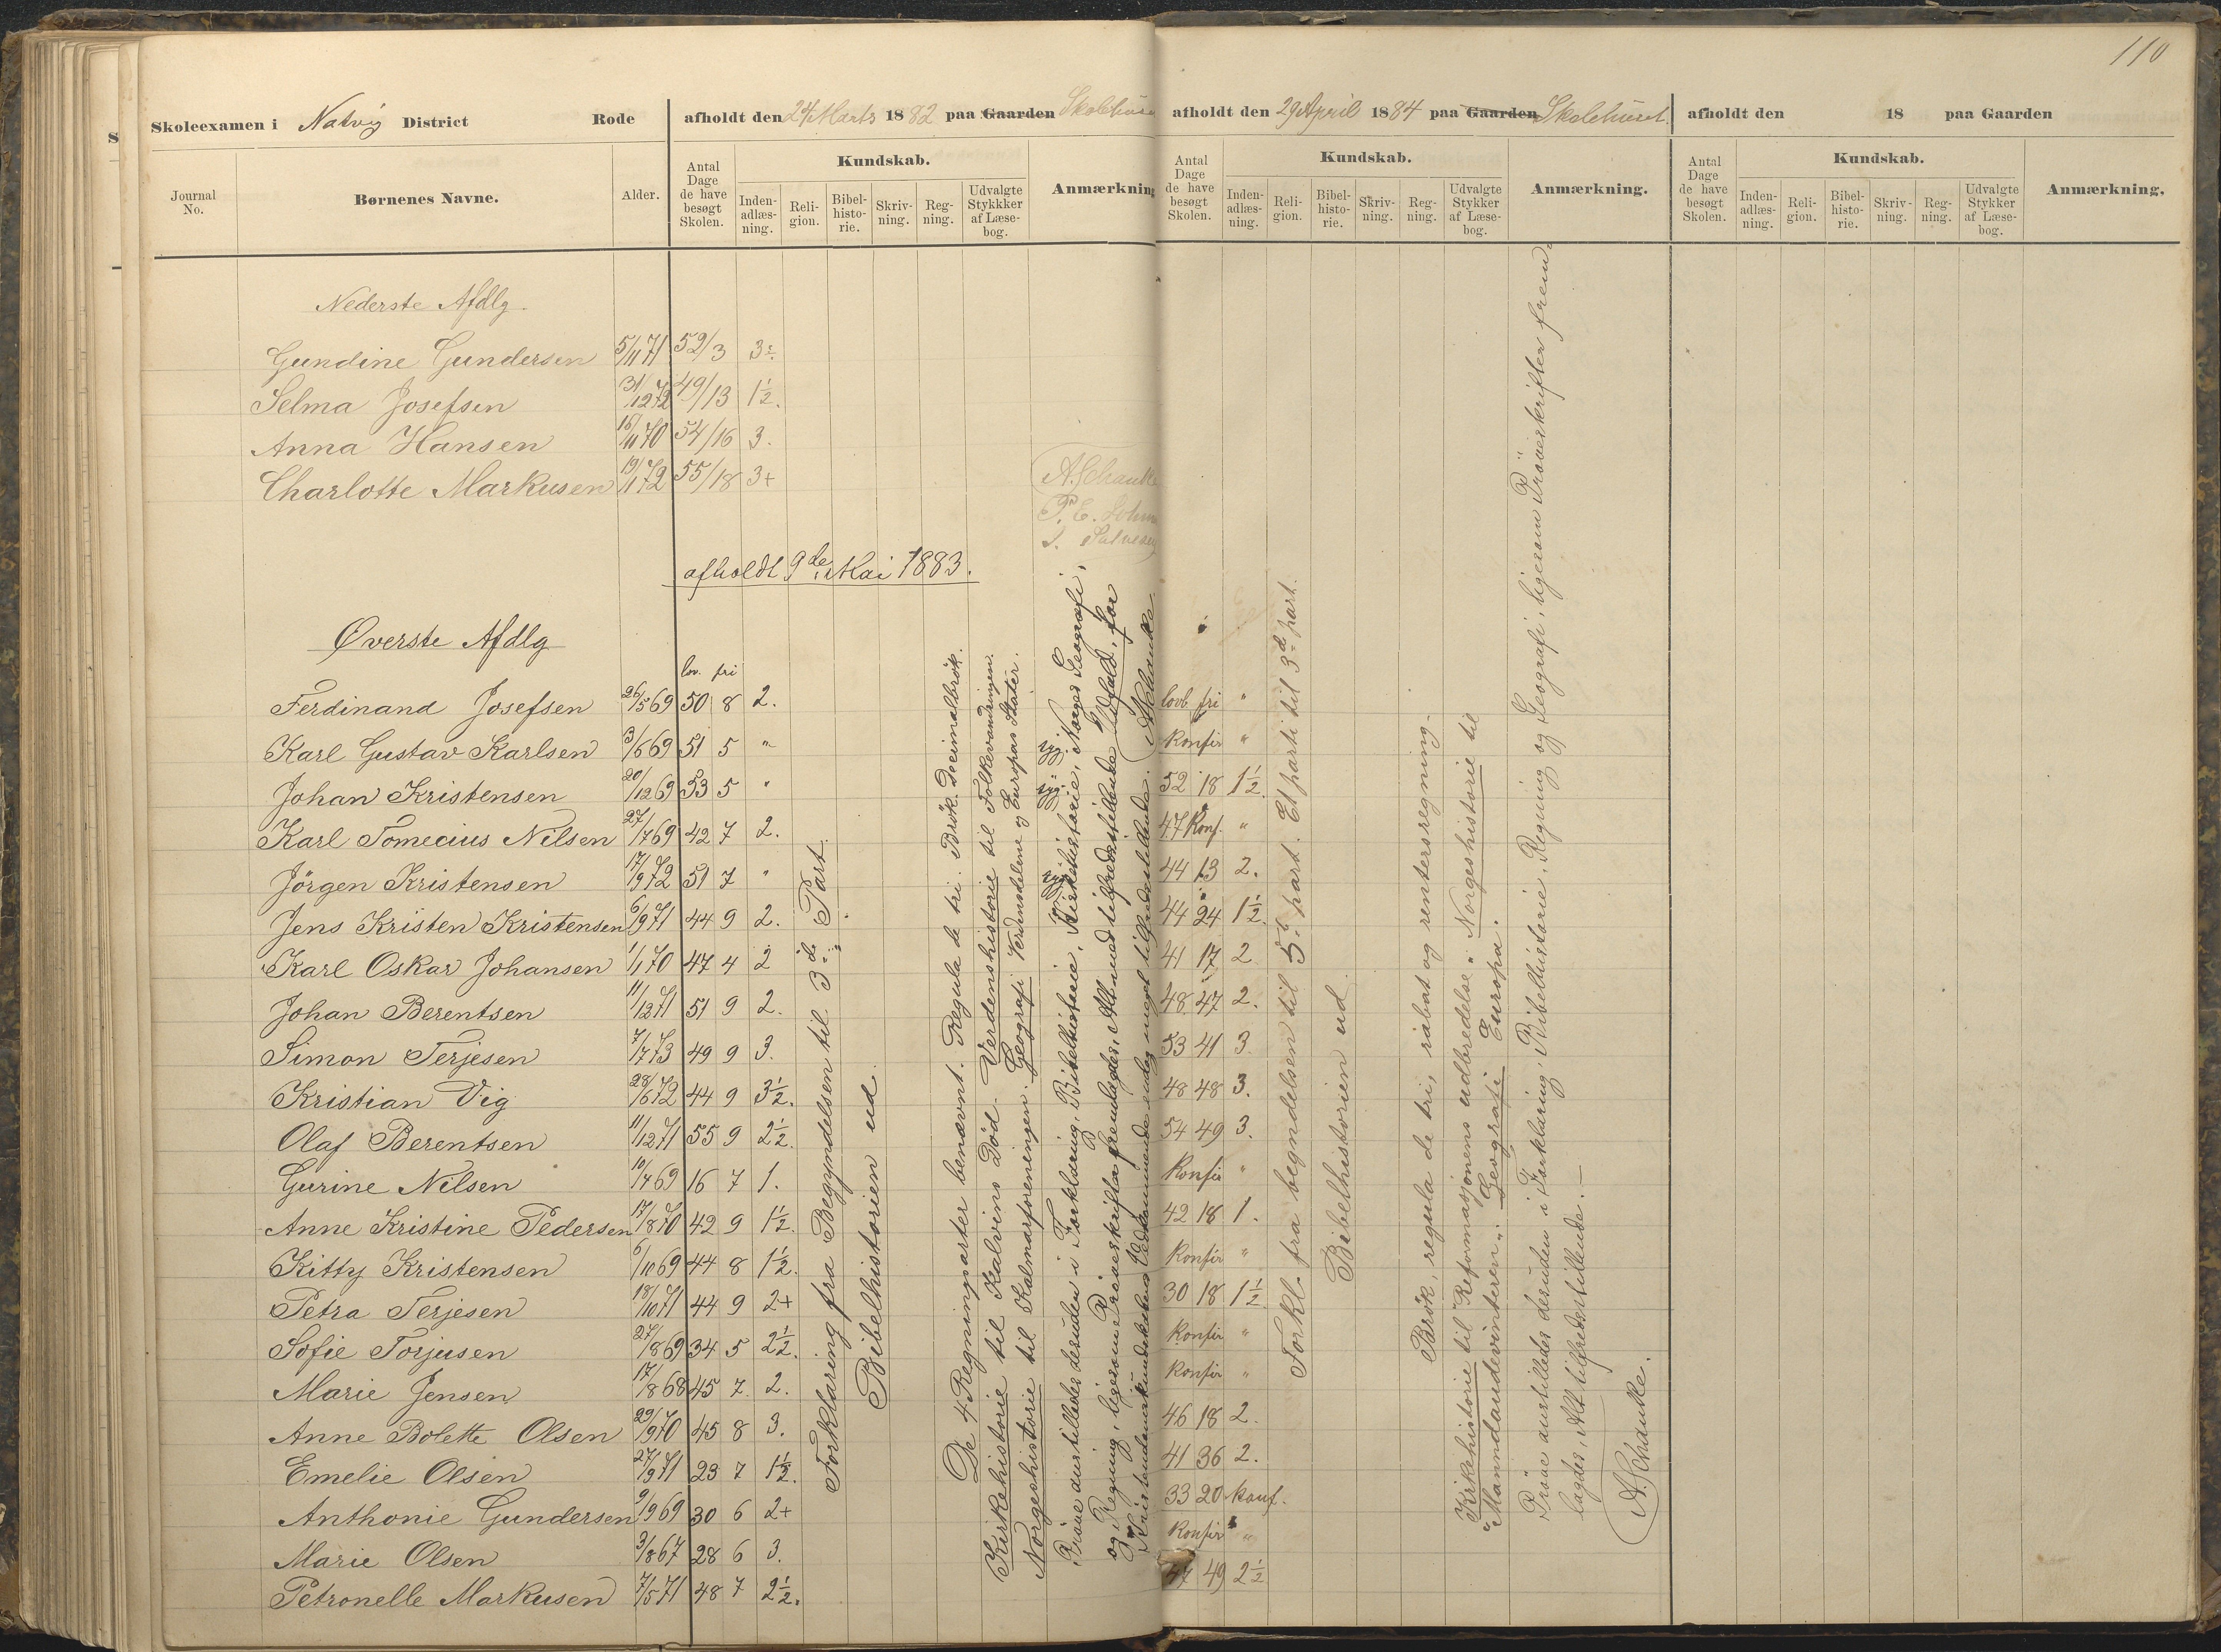 110
Skoleexamen i Natvig District Rode
afholdt den 24 Marts 1882 paa Gaarden Skolehuse
Journal No. Børnenes Navne. Alder. Antal Dage de have besøgt Skolen. Kundskab. Inden-adlæs-ning. Reli-gion. Bibel-histo-rie. Skriv-ning. Reg-ning. Udvalgte Stykker af Læse-bog. Anmærkning
Nederste Afdlg.
Gundine Gundersen 5/11 71 52/3 3÷
Selma Josefsen 31/12 72 49/13 1½.
Anna Hansen 18/11 70 54/16 3.
Charlotte Markusen 19/1 72 55/18 3+
A. Schanke
P. E. Lohm
afholdt 9de Mai 1883.
Øverste Afdlg
lov. fri
Ferdinand Josefsen 26/5 69 50 8 2.
Karl Gustav Karlsen 3/6 69 51 5 "
Johan Kristensen 20/12 69 53 5 "
Karl Tomecius Nilsen 27/7 69 42 7 2.
Jörgen Kristensen 17/9 72 51 7 "
Jens Kristen Kristensen 6/9 71 44 9 2.
Karl Oskar Johansen 1/1 70 47 4 2
Johan Berentsen 11/12 71 51 9 2.
Simon Terjesen 7/7 73 49 9 3.
Kristian Vig 28/6 72 44 9 3½.
Olaf Berentsen 11/12 71 55 9 2½.
Gurine Nilsen 10/4 69 16 7 1.
Anne Kristine Pedersen 17/8 70 42 9 1½.
Kitty Kristensen 6/10 69 44 8 1½.
Petra Terjesen 18/10 71 44 9 2+
Sofie Torjusen 27/8 69 34 5 2½.
Marie Jensen 17/8 68 45 7 2.
Anne Bolette Olsen 29/9 70 45 8 3.
Emelie Olsen 27/9 71 23 7 1½.
Anthonie Gundersen 9/9 69 30 6 2+
Marie Olsen 3/8 67 28 6 3.
Petronelle Markusen 7/5 71 48 7 2½.
Forklaring fra Begyndelsen til 3die Part.
Bibelhistorien ud.
De 4 Regningsarter benævnt. Regula de tri. Brök. Decimalbrök.
Kirkehistorie til Kalvins Död. Verdenshistorie til Folkevandringen.
Norgeshistorie til Kalmarforeningen. Geografi Verdensdelene og Europas Stater.
Pröve anstilledes desuden i Forklaring, Bibelhistorie, Kirkehistorie, Norges Geografi
og Regning, ligesom Pröveskrifter fremlagdes, Alt med tilfredsstillende Udfald, for
Kristendomskundskabens Vedkommende endog meget tilfredsstillende. A Schanke
afholdt den 29 April 1884 paa Gaarden Skolehuset.
Antal Dage de have besøgt Skolen. Kundskab. Inden-adlæs-ning. Reli-gion. Bibel-histo-rie. Skriv-ning. Reg-ning. Udvalgte Stykker af Læse-bog. Anmærkning.
lovb fri "
Konfir "
52 18 1½.
47 Konf. "
44 13 2.
44 24 1½.
41 17 2.
48 47 2.
53 41 3.
48 48 3.
54 49 3.
Konfir "
42 18 1.
Konfir "
30 18 1½
Konfir "
Konfir "
46 18 2.
41 36 2.
33 20 konf.
Konfir "
47 49 2½
Forkl. fra begyndelsen til 5. part. Et parti til 3d part.
Bibelhistorien ud
Brök, regula de tri, rabat og rentersregning.
Kirkehistorie til "Reformasjonens udbredelse". Norgeshistorie til
"Manndaudevinteren". Geografi Europa.
Pröve anstilledes desuden i Forklaring, Bibelhistorie, Regning og Geografi, ligesom Pröveskrifter frem-
lagdes, Alt tilfredsstillende. —
A. Schanke.
afholdt den 18 paa Gaarden
Antal Dage de have besøgt Skolen. Kundskab. Inden-adlæs-ning. Reli-gion. Bibel-histo-rie. Skriv-ning. Reg-ning. Udvalgte Stykker af Læse-bog. Anmærkning.